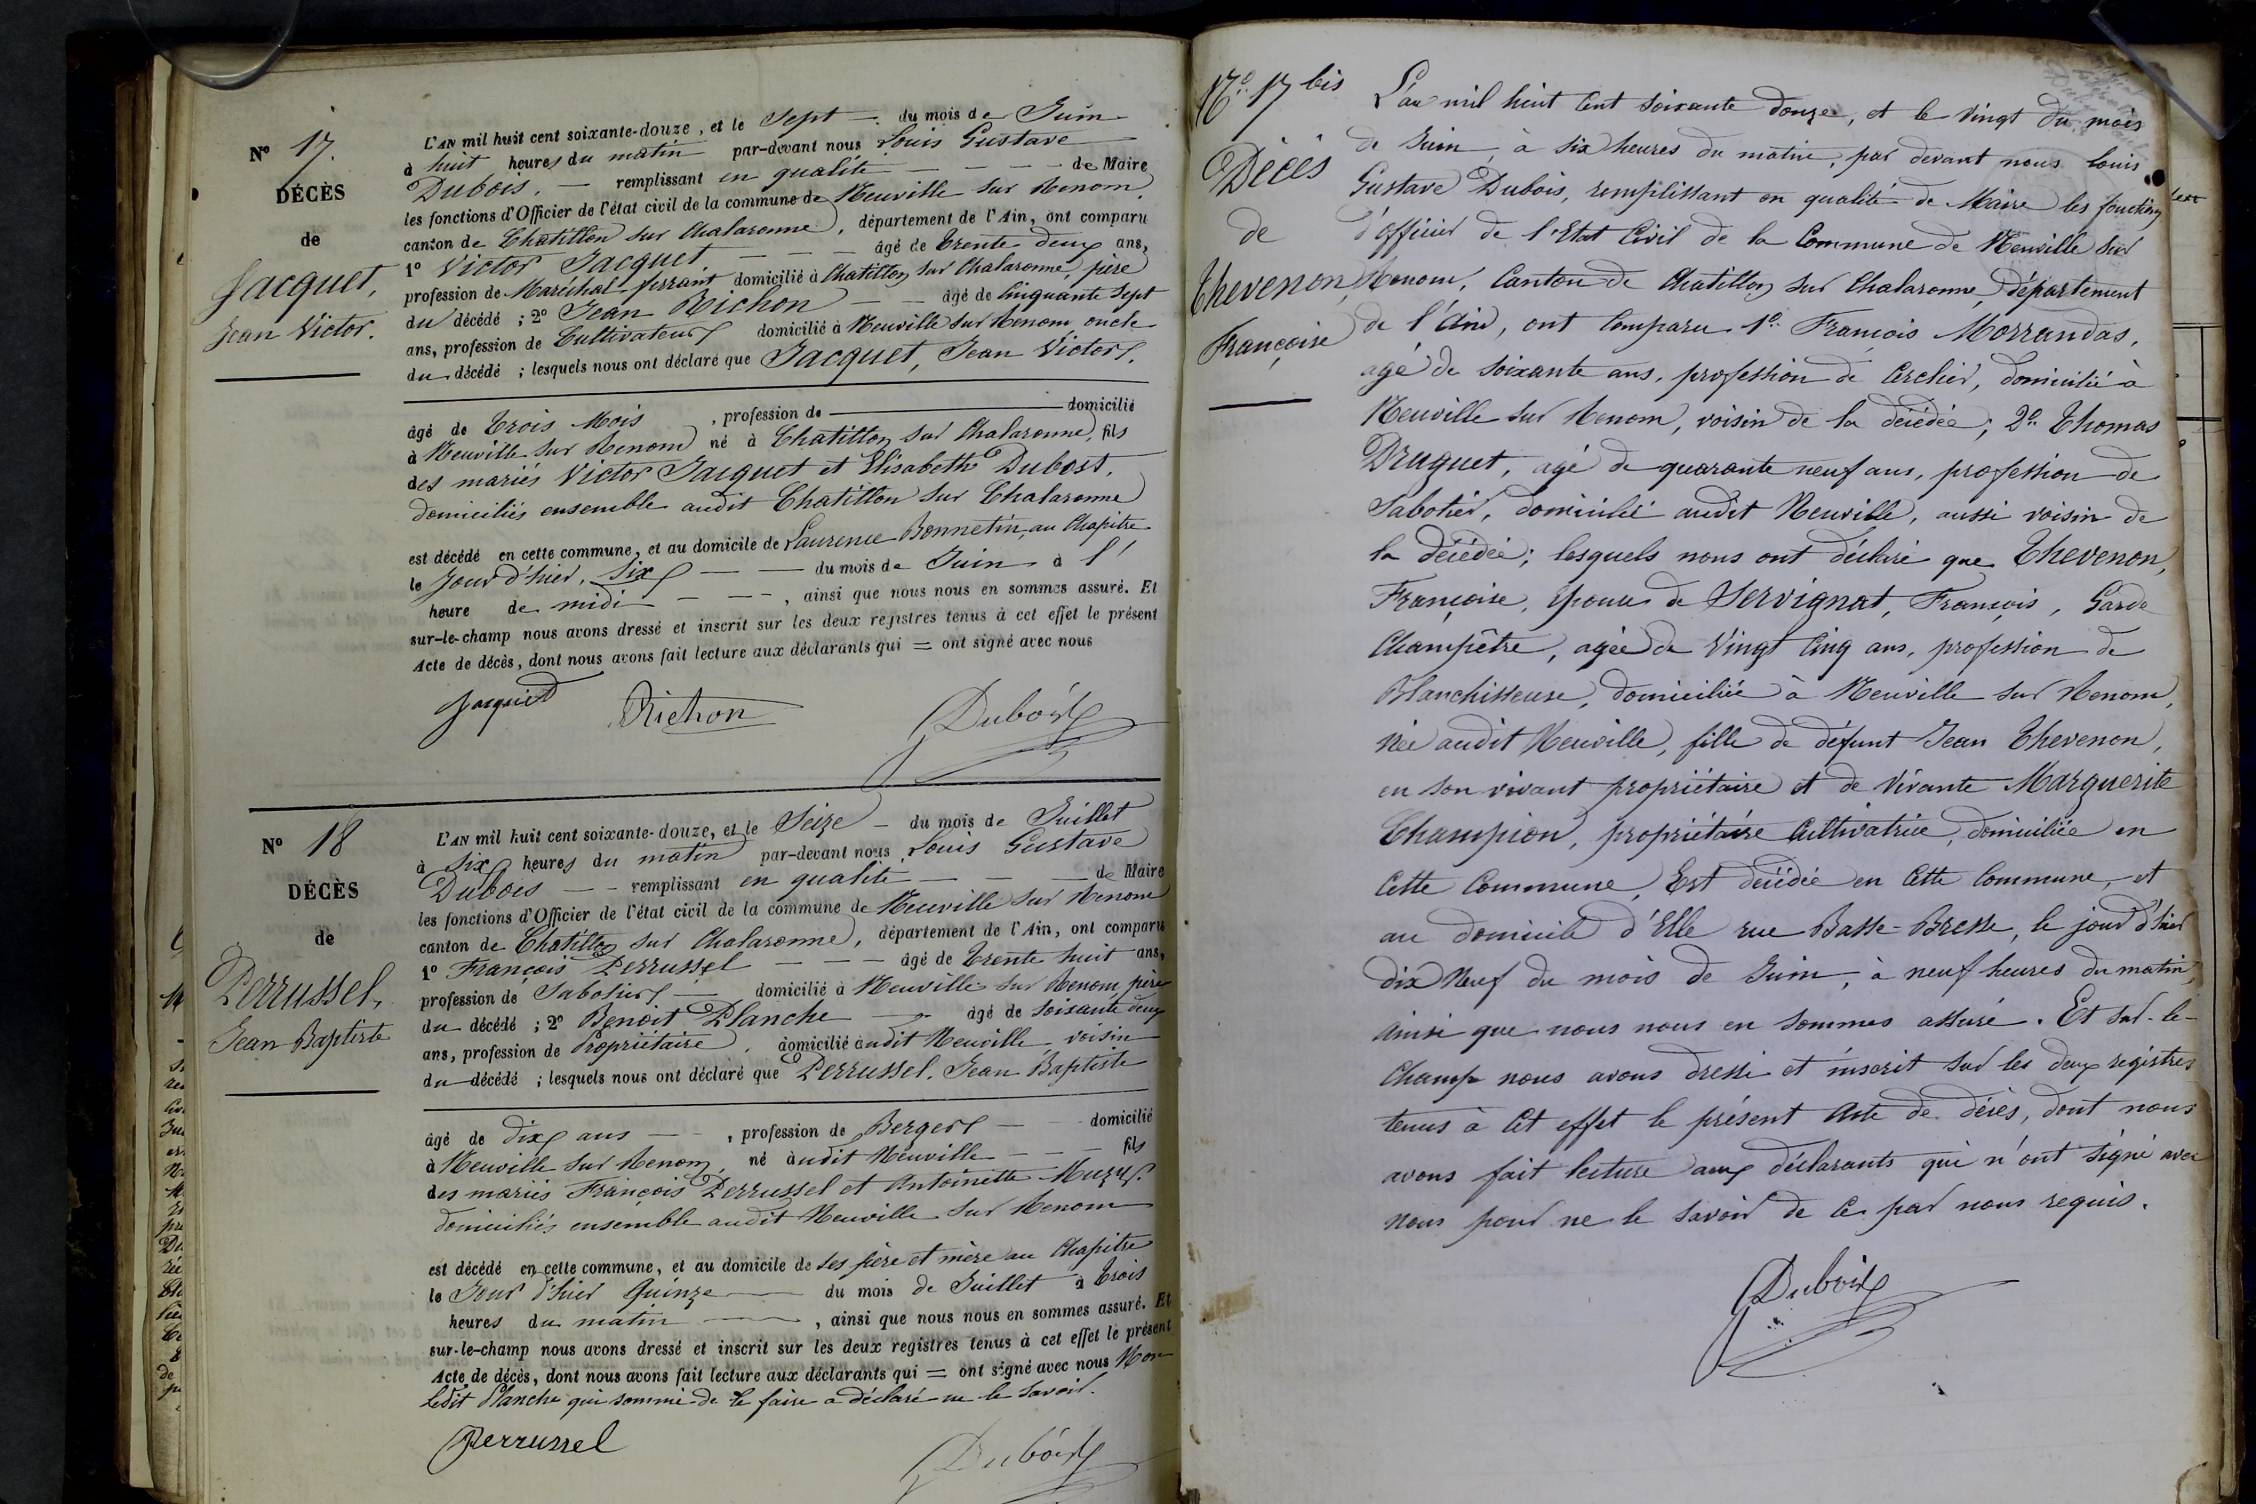 N° 17.
DÉCÈS
de
Jacquet,
Jean Victor.
L'AN mil huit cent soixante-douze, et le Sept du mois de Juin
à huit heures du matin par-devant nous Louis Gustave
Dubois. — remplissant en qualité — — — de Maire
les fonctions d'Officier de l'état civil de la commune de Neuville sur Renom
canton de Chatillon sur Chalaronne, département de l'Ain, ont comparu
1° Victor Jacquet — — âgé de trente deux ans,
profession de Maréchal ferrant domicilié à Chatillon sur Chalaronne, père
du décédé ; 2° Jean Richon — — âgé de Cinquante Sept
ans, profession de Cultivateur domicilié à Neuville sur Renom oncle
du décédé ; lesquels nous ont déclaré que Jacquet, Jean Victor.
âgé de trois Mois , profession de — domicilié
à Neuville sur Renom né à Chatillon sur Chalaronne, fils
des mariés Victor Jacquet et Elisabeth Dubost.
domiciliés ensemble audit Chatillon sur Chalaronne
est décédé en cette commune, et au domicile de Laurence Bonnetin, au Chapitre
le Jour d'hier, Six — — du mois de Juin à l'
heure de midi — — , ainsi que nous nous en sommes assuré. Et
sur-le-champ nous avons dressé et inscrit sur les deux registres tenus à cet effet le présent
Acte de décès, dont nous avons fait lecture aux déclarants qui = ont signé avec nous
Jacquet Richon Dubois
N° 18
DÉCÈS
de
Perrussel,
Jean Baptiste
L'AN mil huit cent soixante-douze, et le Seize — du mois de Juillet
à Six heures du matin par-devant nous Louis Gustave
Dubois — — remplissant en qualité — — — de Maire
les fonctions d'Officier de l'état civil de la commune de Neuville sur Renom
canton de Chatillon sur Chalaronne, département de l'Ain, ont comparu
1° François Perrussel — — — âgé de trente huit ans,
profession de Sabotier — domicilié à Neuville sur Renom, père
du décédé ; 2° Benoit Planche — âgé de soixante deux
ans, profession de Propriétaire, domicilié audit Neuville, voisin
du décédé ; lesquels nous ont déclaré que Perrussel, Jean Baptiste
âgé de dix ans — , profession de Berger — domicilié
à Neuville sur Renom, né audit Neuville — — fils
des mariés François Perrussel et Antoinette Muzy.
domiciliés ensemble audit Neuville sur Renom
est décédé en cette commune, et au domicile de ses père et mère au Chapitre
le Jour d'hier Quinze — du mois de Juillet à trois
heures du matin — , ainsi que nous nous en sommes assuré. Et
sur-le-champ nous avons dressé et inscrit sur les deux registres tenus à cet effet le présent
Acte de décès, dont nous avons fait lecture aux déclarants qui = ont signé avec nous Non
ledit Planche qui sommé de le faire a déclaré ne le savoir.
Perrussel Dubois
N° 17 bis
Décès
de
Thevenon,
Françoise
L'an mil huit Cent soixante douze, et le vingt du mois
de Juin, à six heures du matin, par devant nous Louis
Gustave Dubois, remplissant en qualité de Maire les fonctions
d'officier de l'Etat Civil de la Commune de Neuville sur
Renom, Canton de Chatillon sur Chalaronne, département
de l'Ain, ont Comparu 1° François Morrandas,
agé de soixante ans, profession de Cerclier, domicilié à
Neuville sur Renom, voisin de la décédée; 2° Thomas
Druguet, agé de quarante neuf ans, profession de
Sabotier, domicilié audit Neuville, aussi voisin de
la décédée; lesquels nous ont déclaré que Thevenon,
Françoise, épouse de Servignat, François, Garde
Champêtre, agée de Vingt Cinq ans, profession de
Blanchisseuse, domiciliée à Neuville sur Renom,
née audit Neuville, fille de défunt Jean Thevenon,
en son vivant propriétaire et de Vivante Marguerite
Champion, propriétaire Cultivatrice, domiciliée en
Cette Commune, Est décédée en Cette Commune, et
au domicile d'Elle rue Basse-Bresse, le jour d'hier
dix Neuf du mois de Juin, à neuf heures du matin,
Ainsi que nous nous en sommes assuré. Et sur-le-
Champ nous avons dressé et inscrit sur les deux registres
tenus à Cet effet le présent Acte de décès, dont nous
avons fait lecture aux déclarants qui n'ont signé avec
Nous pour ne le savoir de Ce par nous requis.
Dubois